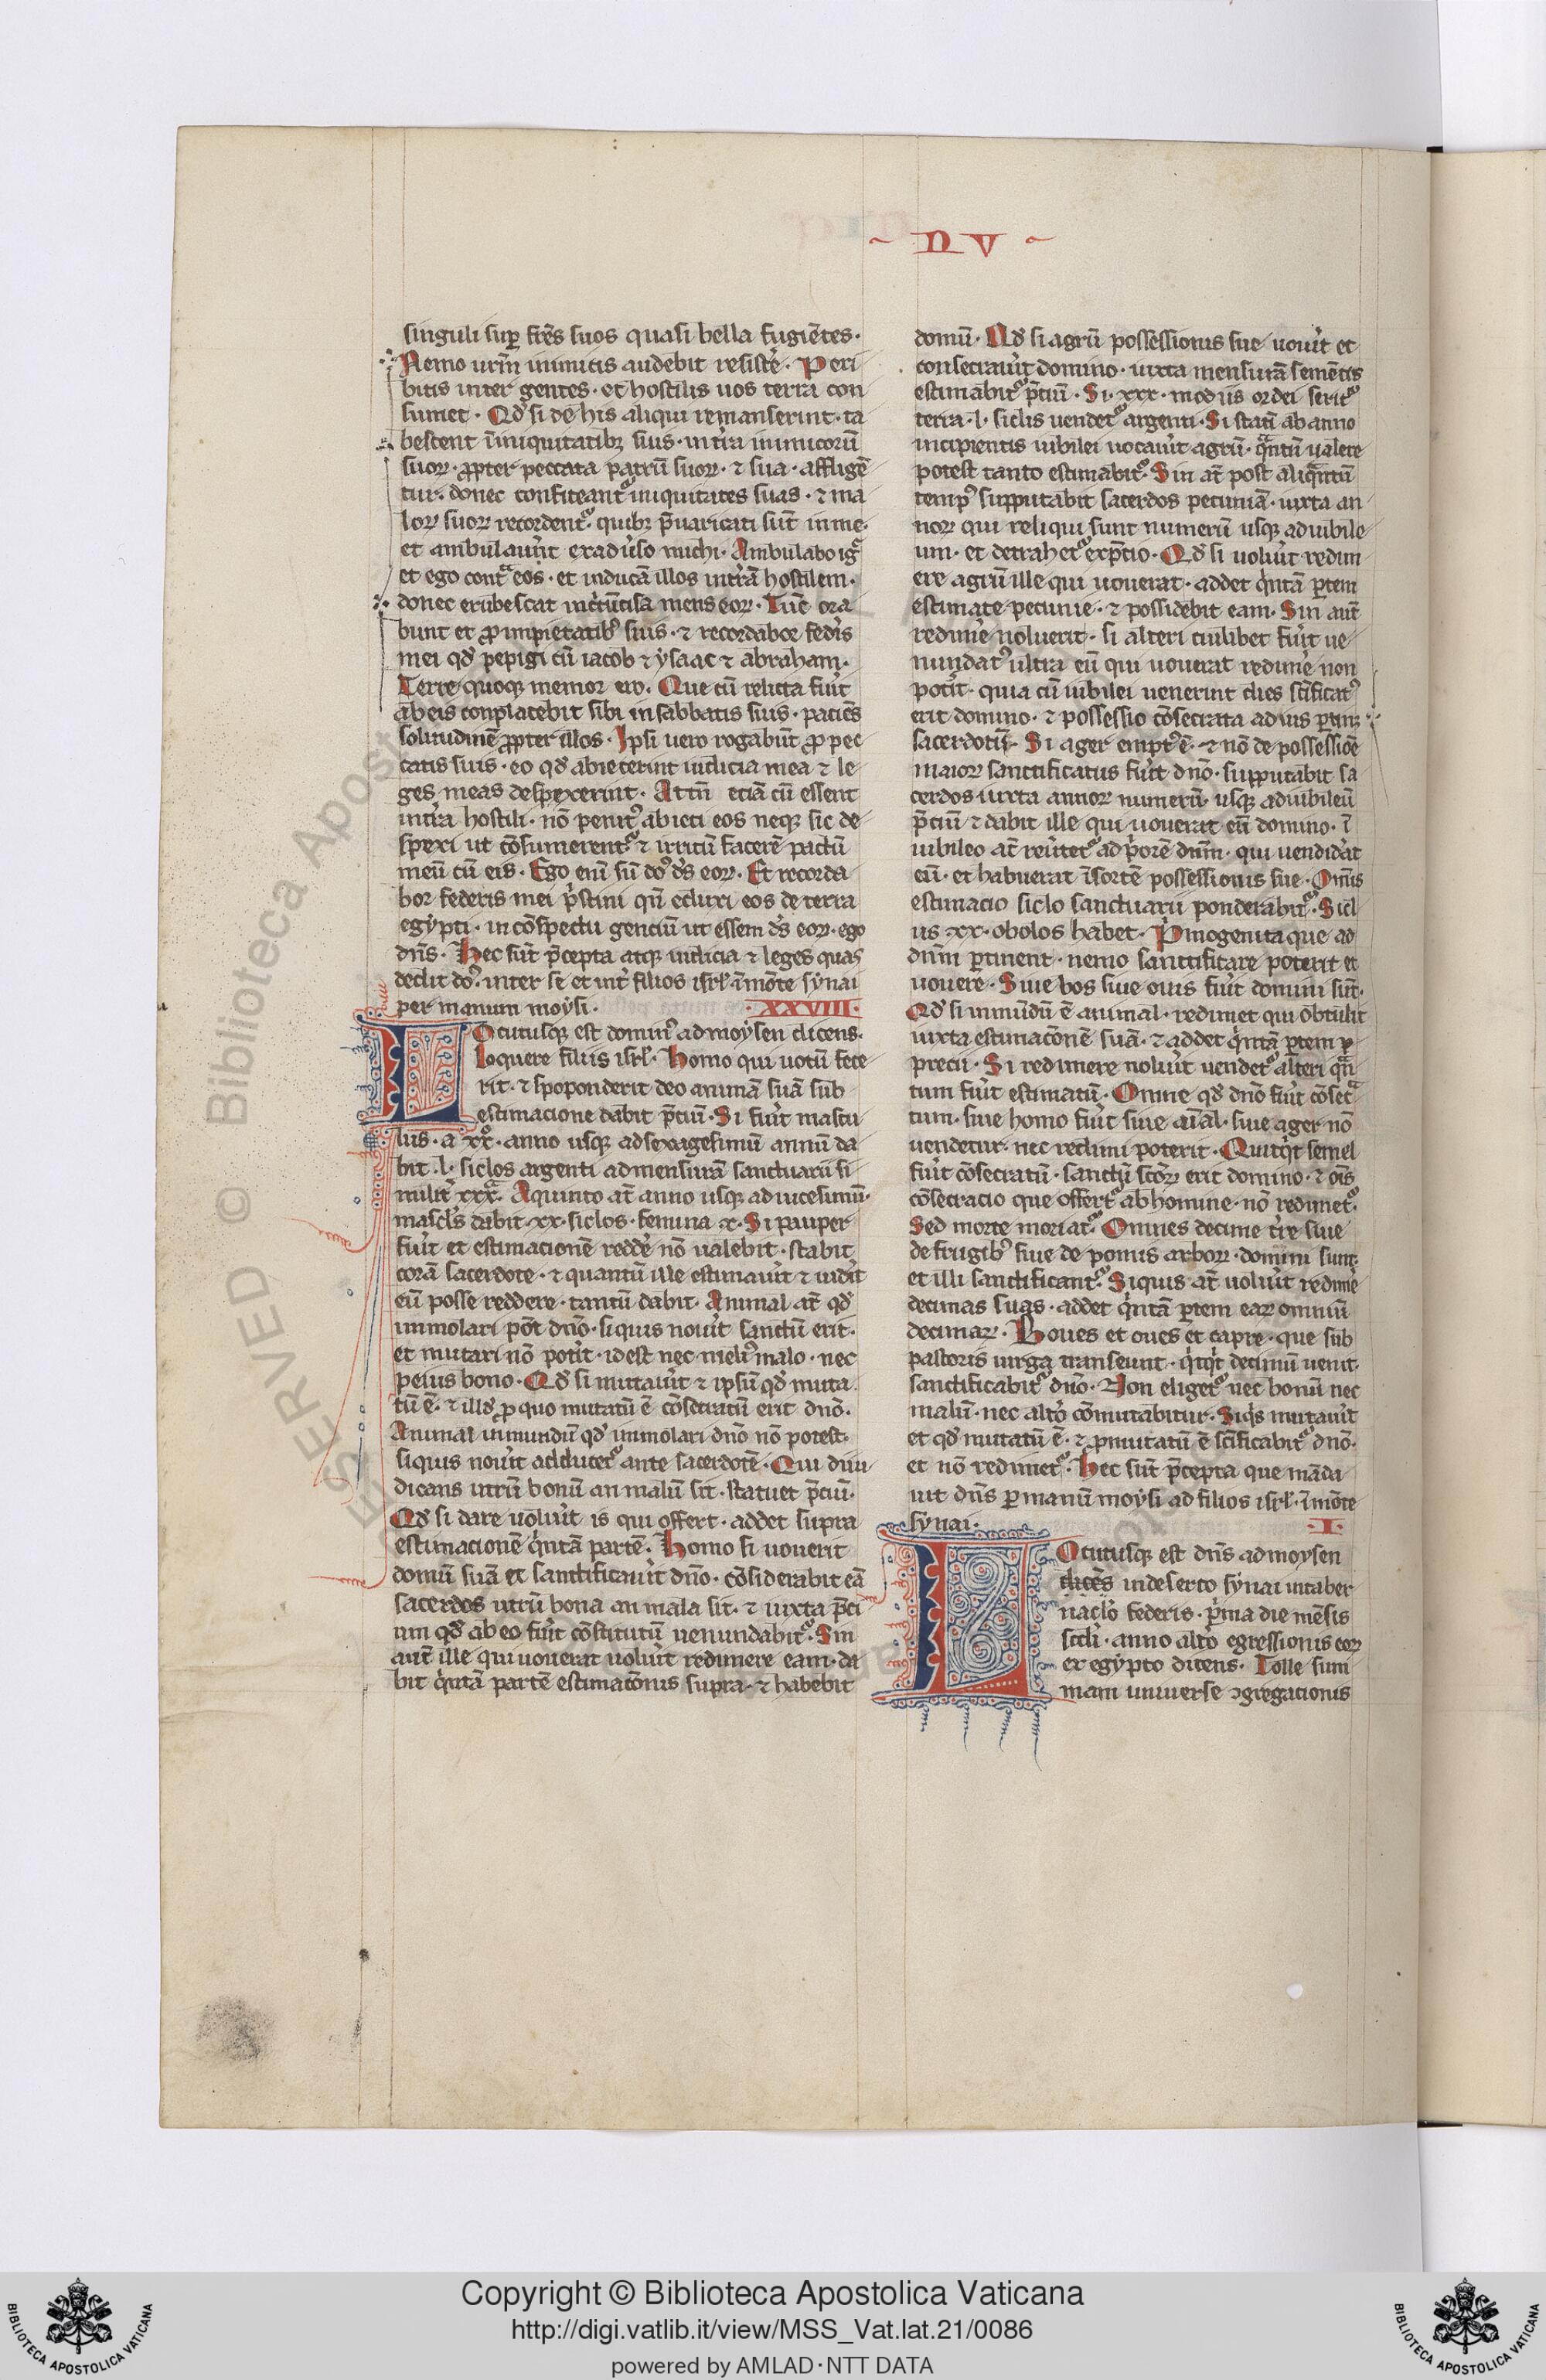 n v
singuli sup̱ fr̄es suos quasi bella fugiētes·
Nemo ur̄m inimicis audebit resist̕e· Peri
bitis inter gentes· et hostilis uos terra con
sumet· Qd̕ si de his aliqui remanserint· ta
bescent īiniquitatibꝫ suis· in t̕ra inimicorū
suoꝝ· ꝓpter peccata patrū suoꝝ· ⁊ sua· affligē
tur· donec confiteant᷑ iniquitates suas· ⁊ ma
loꝝ suoꝝ recordent᷑ quibꝫ p̄uaricati sūt in me·
et ambulauer̄t ex adu̕so michi· Ambulabo ig̾
et ego cont̾ eos· et inducā illos in t̕rā hostilem·
donec erubescat incircūcisa mens eoꝝ· Tūc ora
bunt et ꝓ impietatib᷒ suis· ⁊ recordabor fed̕is
mei qd̕ pepigi cū iacob ⁊ ysaac ⁊ abraham·
Terre quoqꝫ memor ero· Que cū relicta fu̕it
ab eis conplacebit sibi in sabbatis suis· paciēs
solitudinē ꝓpter illos· Ipsi uero rogabūt ꝓ pec
catis suis· eo qd̕ abiecerint iudicia mea ⁊ le
ges meas despexerint· Attn̄ eciā cū essent
in t̕ra hostili· nō penit᷒ abieci eos neqꝫ sic de
spexi ut cōsumerent᷑ ⁊ irritū facerē pactū
meū cū eis· Ego eni̅ sū do᷒ d̕s eoꝝ· Et recorda
bor federis mei p̕stini qn̄ eduxi eos de terra
egypti· in cōspectu genciū ut essem d̕s eoꝝ· ego
dn̄s· Hec sūt p̄cepta atqꝫ iudicia ⁊ leges quas
dedit do᷒ inter se et int̕ filios isrl̕ ī mōte synai
per manum moysi· ·XXVIII·
Locutusqꝫ est domin᷒ ad moysen dicens·
loquere filiis isrl̕· Homo qui uotū fece
rit· ⁊ spoponderit deo animā suā sub
estimacione dabit p̄ciū· Si fu̕it mascu
lus· a xx̊· anno usqꝫ ad sexagesimū annū da
bit ·l· siclos argenti ad mensurā sanctuarii si
mulier xxx̾· A quinto at̄ anno usqꝫ ad uicesimū·
mascl̕s dabit xx· siclos· femina x· Si pauper
fu̕it et estimacionē redd̕e nō ualebit· stabit
corā sacerdote· ⁊ quantū ille estimau̕it ⁊ uid̕it
eū posse reddere· tantū dabit· Animal at̄ qd̕
immolari pōt dn̄o· si quis nou̕it sanctū erit·
et mutari nō pot̕it· id est nec meli᷒ malo· nec
peius bono· Qd̕ si mutau̕it ⁊ ipsū qd̕ muta
tū ē· ⁊ illd̕ ꝓ quo mutatū ē cōsecratū erit dn̄o·
Animal inmundū qd̕ immolari dn̄o nō potest·
si quis nou̕it adducet᷑ ante sacerdotē· Qui diiu
dicans utrū bonū an malū sit· statuet p̄ciū·
Qd̕ si dare uolu̕it is qui offert· addet supra
estimacionē q̕ntā partē· Homo si uouerit
domū suā et sanctificau̕it dn̄o· cōsiderabit eā
sacerdos utrū bona an mala sit· ⁊ iuxta p̄ci
um qd̕ ab eo fu̕it cōstitutū uenundabit᷑· Sin
aut̄ ille qui uouerat uolu̕it redimere eam· da
bit q̕ntā partē estimacōnis supra· ⁊ habebit
domū· Qd̕ si agrū possessionis sue uou̕it et
consecrau̕it domino· iuxta mensurā sementis
estimabit᷑ p̄ciū· Si ·xxx· modiis ordei serit᷑
terra ·l· siclis uendet᷑ argenti· Si statī ab anno
incipientis iubilei uocau̕it agrū· q̾ntū ualere
potest tanto estimabit᷑· Sin at̄ post aliq̾ntū
temp᷒ supputabit sacerdos pecuniā· iuxta an
noꝝ qui reliqui sunt numerū usqꝫ ad iubile
um· et detrahet᷑ ex p̄cio· Qd̕ si uolu̕it redim
ere agrū ille qui uouerat· addet q̕ntā ꝑtem
estimate pecunie· ⁊ possidebit eam· Sin aut̄
redim̕e noluerit· si alteri cuilibet fu̕it ue
nundat᷒ ultra eū qui uouerat redim̕e non
pot̕it· quia cū iubilei uenerint dies sc̄ificat᷒
erit domino· ⁊ possessio cōsecrata ad ius ꝑtinꝫ
sacerdotū· Si ager empt᷒ ē· ⁊ nō de possessiōe
maioꝝ sanctificatus fu̕it dn̄o· supputabit sa
cerdos iuxta annoꝝ numerū· usqꝫ ad iubileū
p̄ciū ⁊ dabit ille qui uouerat eū domino· ī
iubileo at̄ reu̕tet᷑ ad p̕orē dn̄m· qui uendid̕at
eū· et habuerat ī sortē possessionis sue· Omīs
estimacio siclo sanctuarii ponderabit᷑· Sicl
us xx· obolos habet· P̕mogenita que ad
dn̄m ꝑtinent· nemo sanctificare poterit et
uouere· Siue bos siue ouis fu̕it domini sūt·
Qd̕ si inmūdū ē animal· redimet qui obtulit
iuxta estimacōnem suā· ⁊ addet q̕ntā ꝑtem
precii· Si redimere nolu̕it uendet᷑ alteri q̾n
tum fu̕it estimatū· Omne qd̕ dn̄o fu̕it cōsec̾
tum· siue homo fu̕it siue aīal· siue ager nō
uendetur· nec redimi poterit· Quicq̕t semel
fu̕it cōsecratū· sanctū sc̄oꝝ erit domino· ⁊ oīs
cōsecracio que offert᷑ ab homine· nō redimet᷑·
Sed morte moriat᷑· Omnes decime t̕re siue
de frugib᷒ siue de pomis arboꝝ· domini sunt·
et illi sanctificant᷑· Si quis at̄ uolu̕it redim̕e
decimas suas· addet q̕ntā ꝑtem eaꝝ omniū
decimaꝝ· Boues et oues et capre· que sub
pastoris uirga transeunt· q̕cq̕t decimū uenit·
sanctificabit᷑ dn̄o· Non eliget᷑ nec bonū nec
malū· nec alt̕o cōmutabitur· Siq̕s mutau̕it
et qd̕ mutatū ē· ⁊ ꝓmutatū ē sc̄ificabit᷑ dn̄o·
et nō redimet᷑· Hec sūt p̄cepta que māda
uit dn̄s ꝑ manū moysi ad filios isrl̕· ī mōte
synai· ·I·
Locutusqꝫ est dn̄s ad moysen
dicēs in deserto synai in taber
nacl̕o federis· p̕ma die mēsis
scd̕i· anno alt̕o egressionis eoꝝ
ex egypto dicens· Tolle sum
mam uniuerse ꝯgregationis
Copyright © Biblioteca Apostolica Vaticana
http://digi.vatlib.it/view/MSS_Vat.lat.21/0086
powered by AMLAD·NTT DATA
BIBLIOTECA APOSTOLICA VATICANA
BIBLIOTECA APOSTOLICA VATICANA